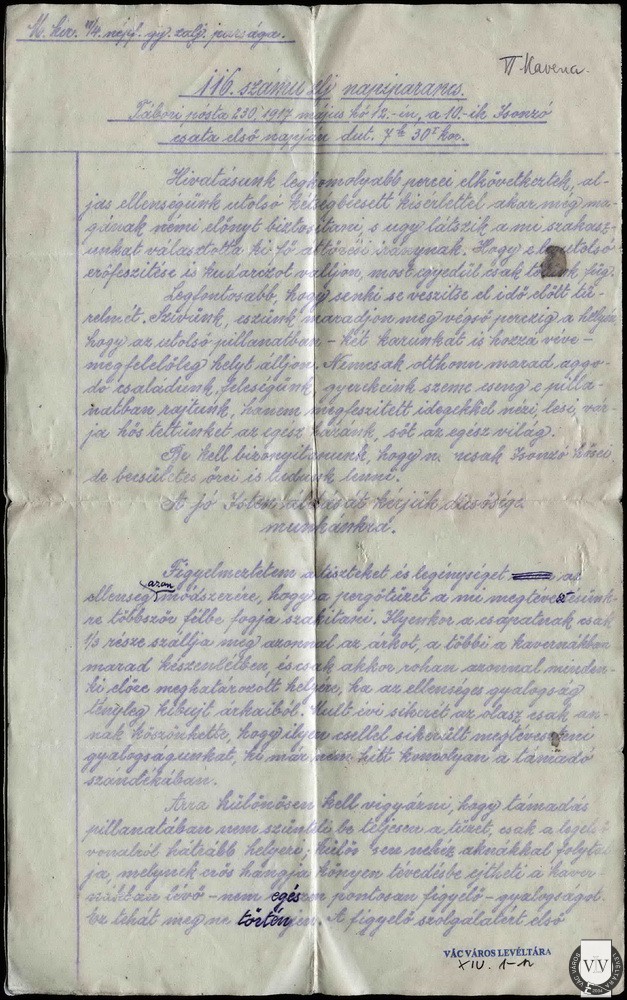 M. kir. IV/4. népf. gy. zalj. parsága.
VI. Kaverna.
116. számú zlj napiparancs.
Tábori pósta 230 1917 május hó 12.-én, a 10.-ik Isonzó
csata első napján dut. 7h 30' kor.
Hivatásunk legkomolyabb percei elkövetkeztek, al-
jas ellenségünk utolsó kétségbeesett kisérlettel akar még ma-
gának némi előnyt biztosítani, s ugy látszik a mi szakasz-
unkat választotta ki fő áttörési iránynak. Hogy e utolsó
erőfeszitése is kudarczot valljon, most egyedül csak tőlünk füg.
Legfontosabb, hogy senki se veszitse el idő előtt tü-
relmét. Szivünk, eszünk maradjon meg végső perczig a helyén
hogy az utolsó pillanatban - két karunkat is hozzá véve -
megfelelőleg helyt álljon. Nemcsak otthonn marad aggó-
dó családunk, feleségünk, gyerekeink szeme csüng e pilla-
natban rajtunk, hanem megfeszitett idegekkel nézi, lesi, vár-
ja hős tettünket az egész hazánk, sőt az egész világ.
Be kell bizonyitnunk, hogy n. csak Isonzó hősei
de becsületes őrei is tudunk lenni.
A jó Isten áldását kérjük dicsőséges
munkánkra.
Figyelmeztetem a tiszteket és legénységet az
ellenség azon módszerére, hogy a pergőtüzet a mi megtévesztésünk-
re többször félbe fogja szakitani. Ilyenkor a csapatnak csak
1/3 része szállja meg azonnal az árkot, a többi a kavernákban
marad készenlétben, és csak akkor rohan azonnal minden-
ki előre meghatározott helyére, ha az ellenséges gyalogság
tényleg kibujt árkaiból. Mult évi sikerét az olasz csak an-
nak köszönhette, hogy ilyen csellel sikerült megtéveszteni
gyalogságunkat, ki már nem hitt komolyan a támadó
szándékában.
Arra különösen kell vigyázni, hogy támadás
pillanatában nem szünteti be teljesen a tüzet, csak a legelső
vonalról hátrább helyezi, külö sen nehéz aknákkal folytat-
ja, melynek erős hangja könyen tévedésbe ejtheti a kaver-
nákban lévő - nem egészen pontosan figyelő - gyalogságot.
Ez tehát meg ne történjen. A figyelő szolgálatért első
VÁC VÁROS LEVÉLTÁRA
XIV. 1-12
VÁC VÁROS LEVÉLTÁRA
VVL